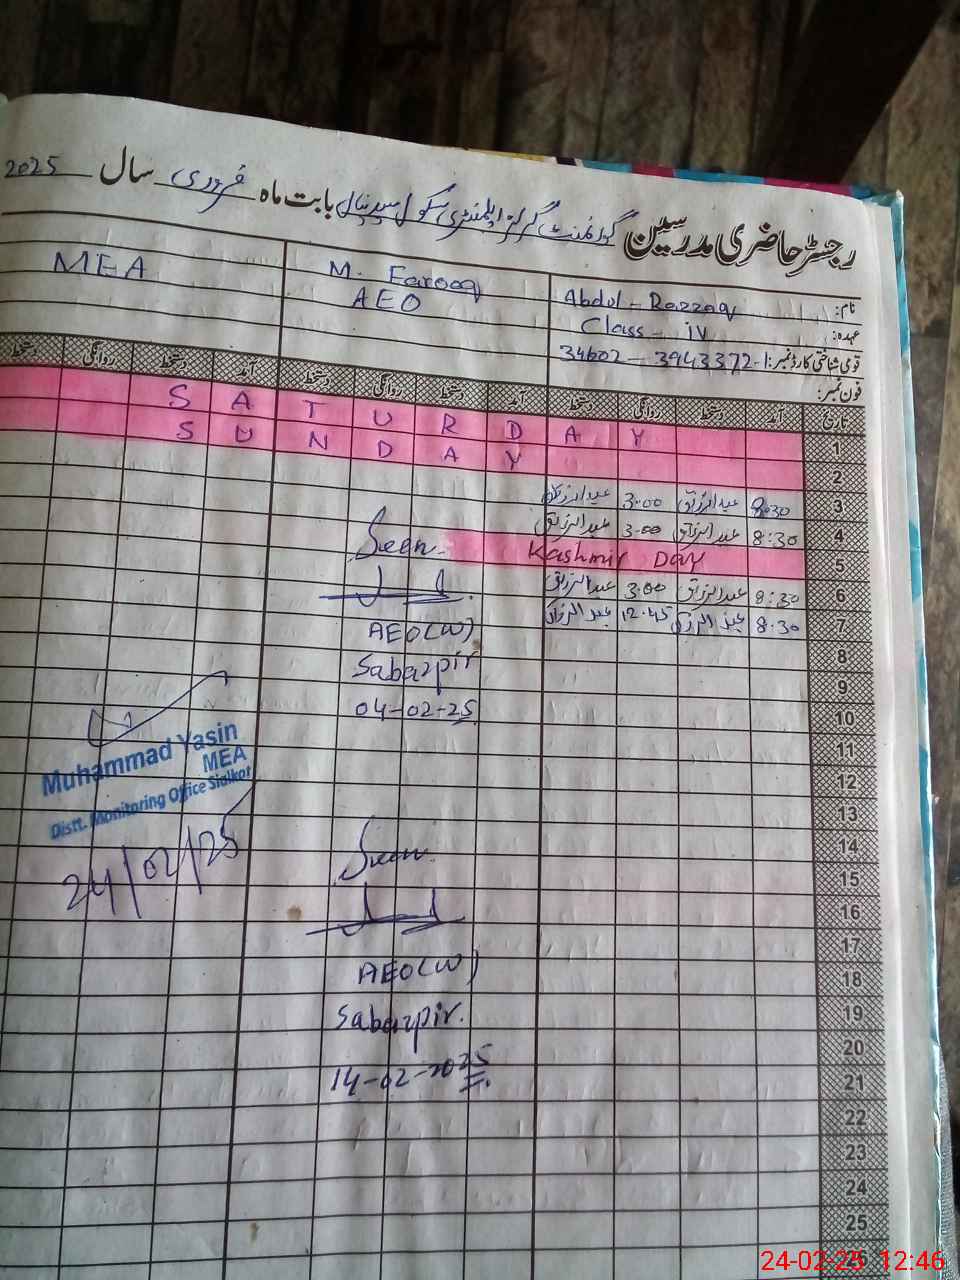 رجسٹر حاضری مدرسین گورنمنٹ گرلز ایلیمنٹری سکول بابت ماہ فروری سال 2025
نام: Abdul-Razzaq
M. Farooq
MEA
عہدہ: Class-iv
AEO
قومی شناختی کارڈ نمبر: 34602-3943372-1
فون نمبر:
تاریخ آمد دستخط روانگی دستخط آمد دستخط روانگی دستخط آمد دستخط روانگی دستخط
1 SATURDAY
2 SUNDAY
3 8:30 عبدالرزاق 3:00 عبدالرزاق
4 8:30 عبدالرزاق 3:00 عبدالرزاق
5 Kashmir DAY
6 8:30 عبدالرزاق 3:00 عبدالرزاق
7 8:30 عبدالرزاق 12:45 عبدالرزاق
8
9
10
11
12
13
14
15
16
17
18
19
20
21
22
23
24
25
26
Seen
AEO(W)
Sabazpir
04-02-25
Seen
AEO(W)
Sabazpir.
14-02-2025
Muhammad Yasin
MEA
Distt. Monitoring Office Sialkot
24/02/25
24-02-25 12:46